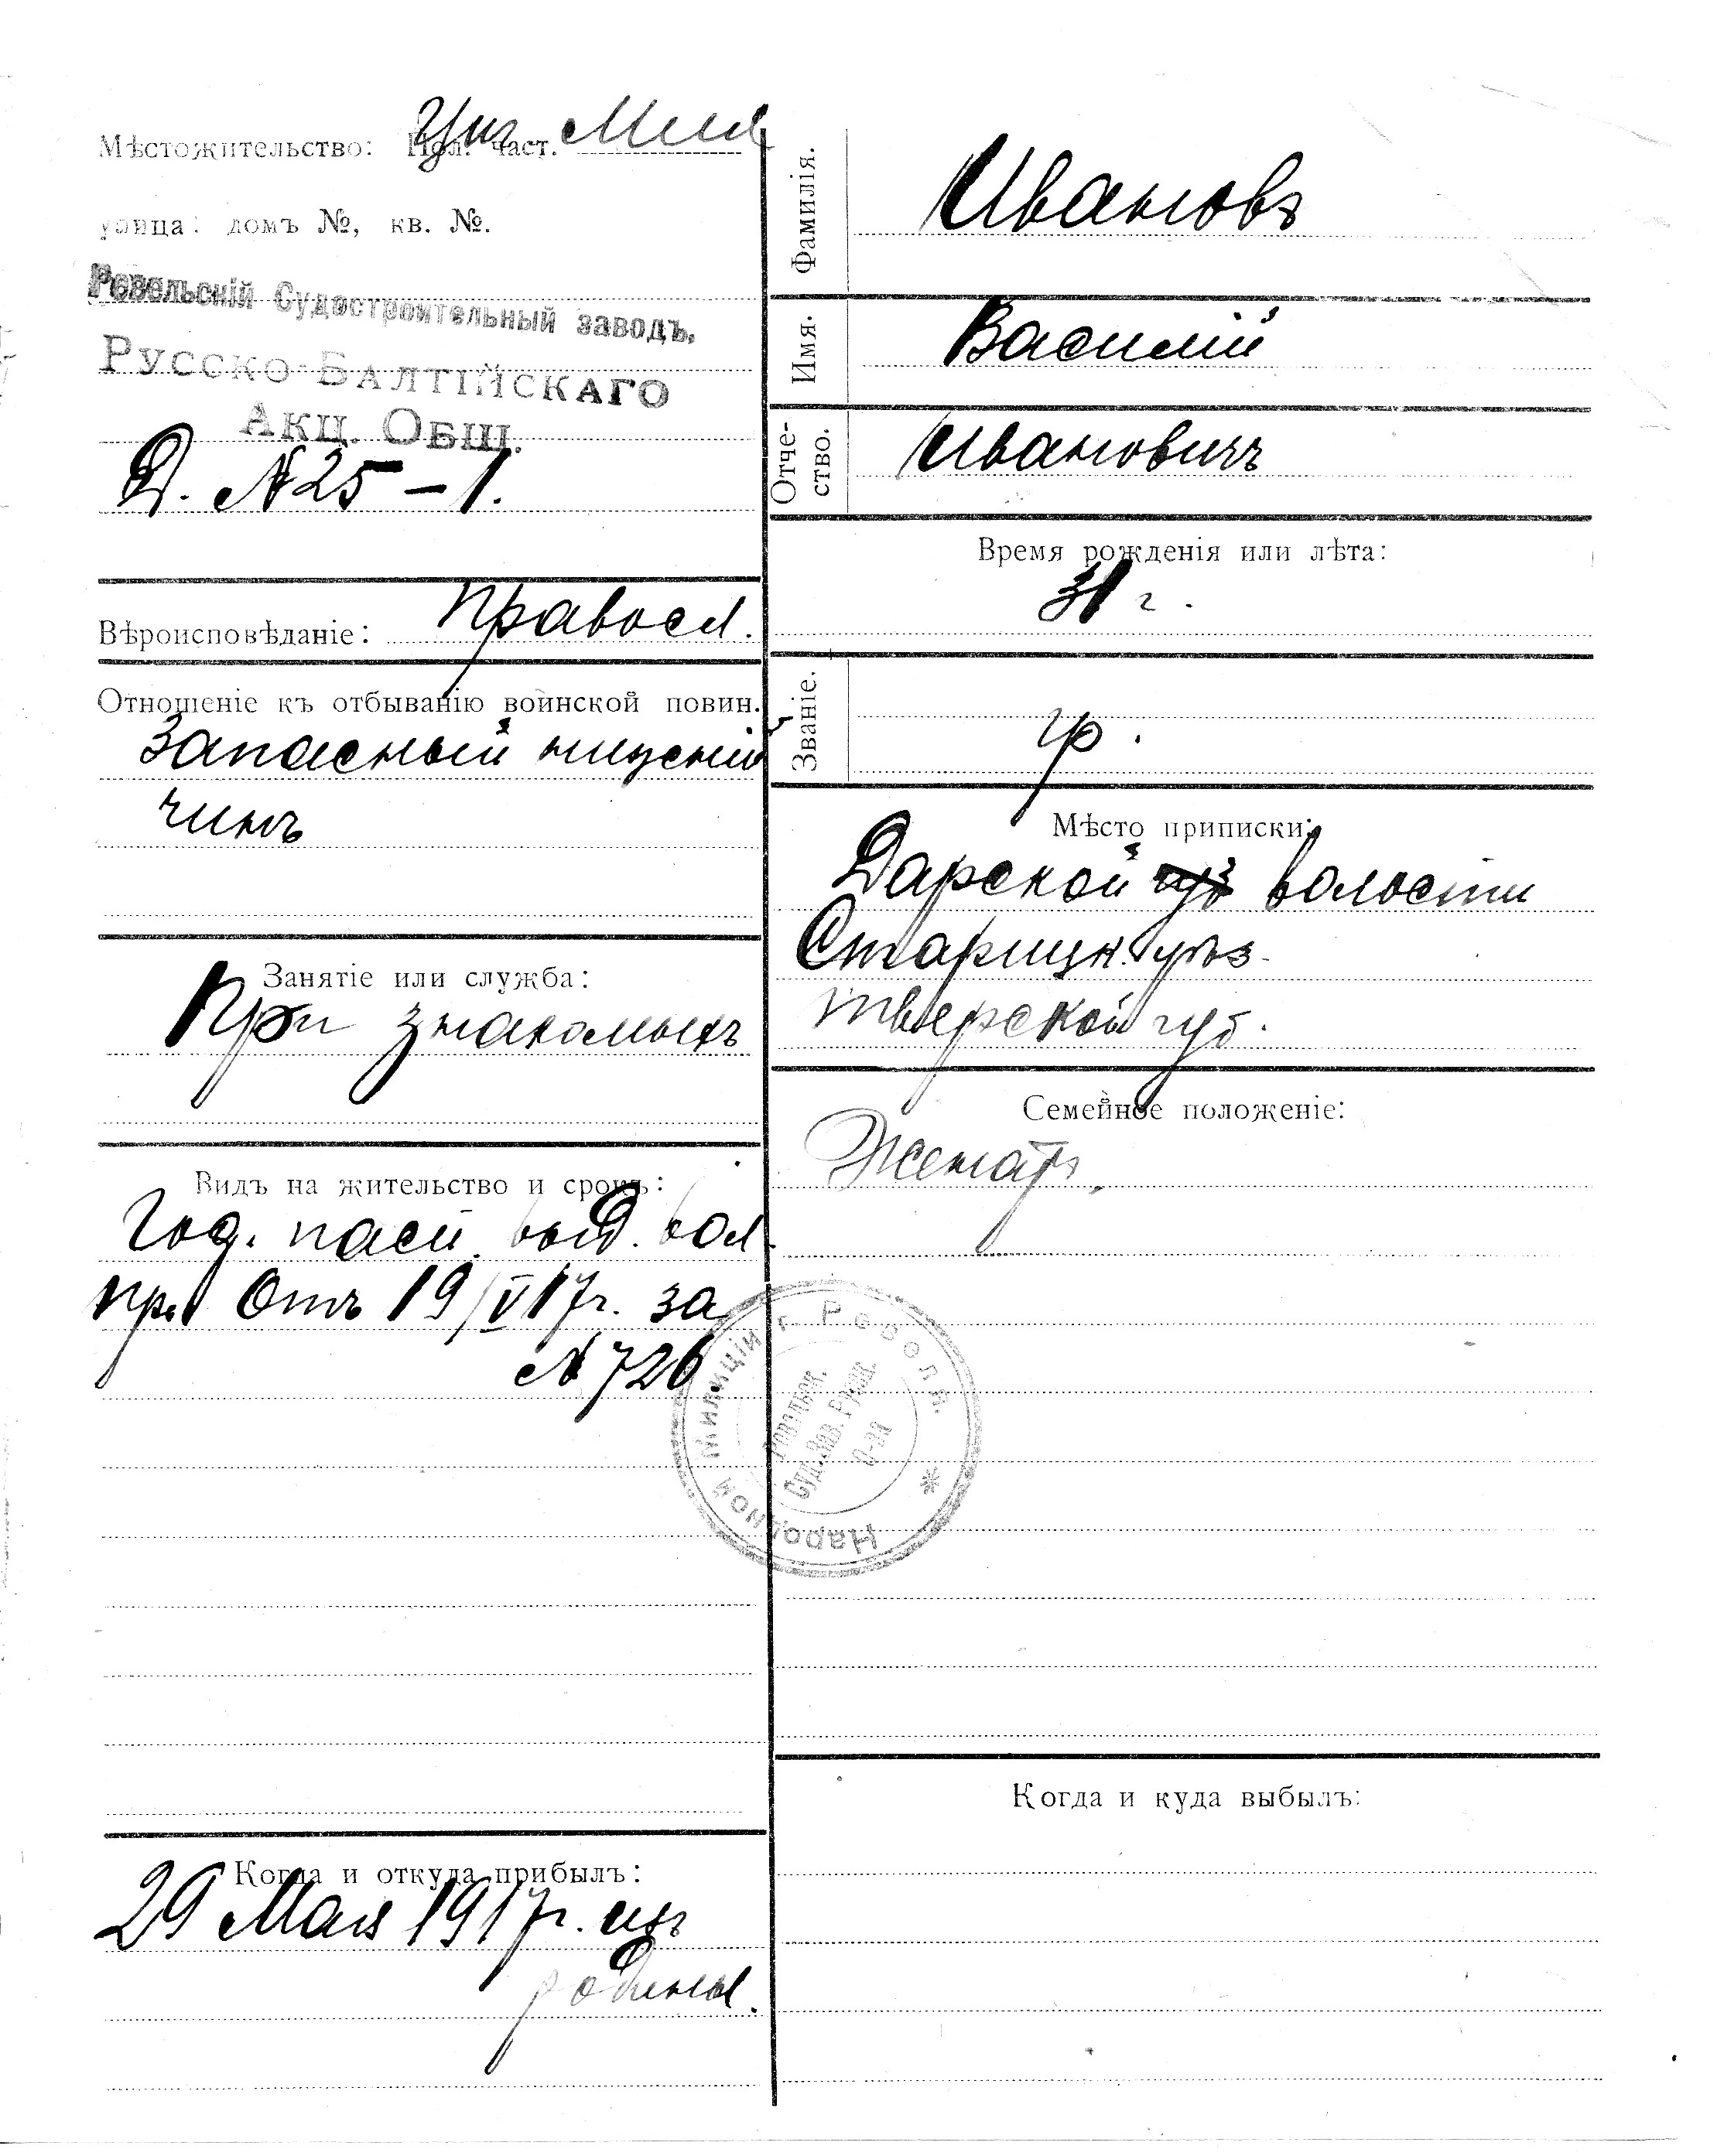 Мѣстожительство: Пол. част. Мил
улица: домъ №, кв. №.
Ревельскій Судостроительный заводъ.
Русско-Балтійскаго
Акц. Общ.
Д. № 25 – 1.
Вѣроисповѣданіе: Правосл.
Отношеніе къ отбыванію воинской повин.
Запасный нижній
чинъ
Занятіе или служба:
При знакомыхъ
Видъ на жительство и срокъ:
Год. пасп. выд. вол.
пр. Отъ 19/V 17 г. за
№ 726
Когда и откуда прибылъ:
29 Мая 1917 г. изъ
родины.
Фамилія. Ивановъ
Имя. Василій
Отче-
ство. Ивановичъ
Время рожденія или лѣта:
31 г.
Званіе. гр.
Мѣсто приписки:
Дарской волости
Старицк. уѣз.
Тверской губ.
Семейное положеніе:
Женатъ.
Народной Милиціи г. Ревеля. *
Ревельск.
Суд. Зав. Русск.
О-ва
Когда и куда выбылъ: